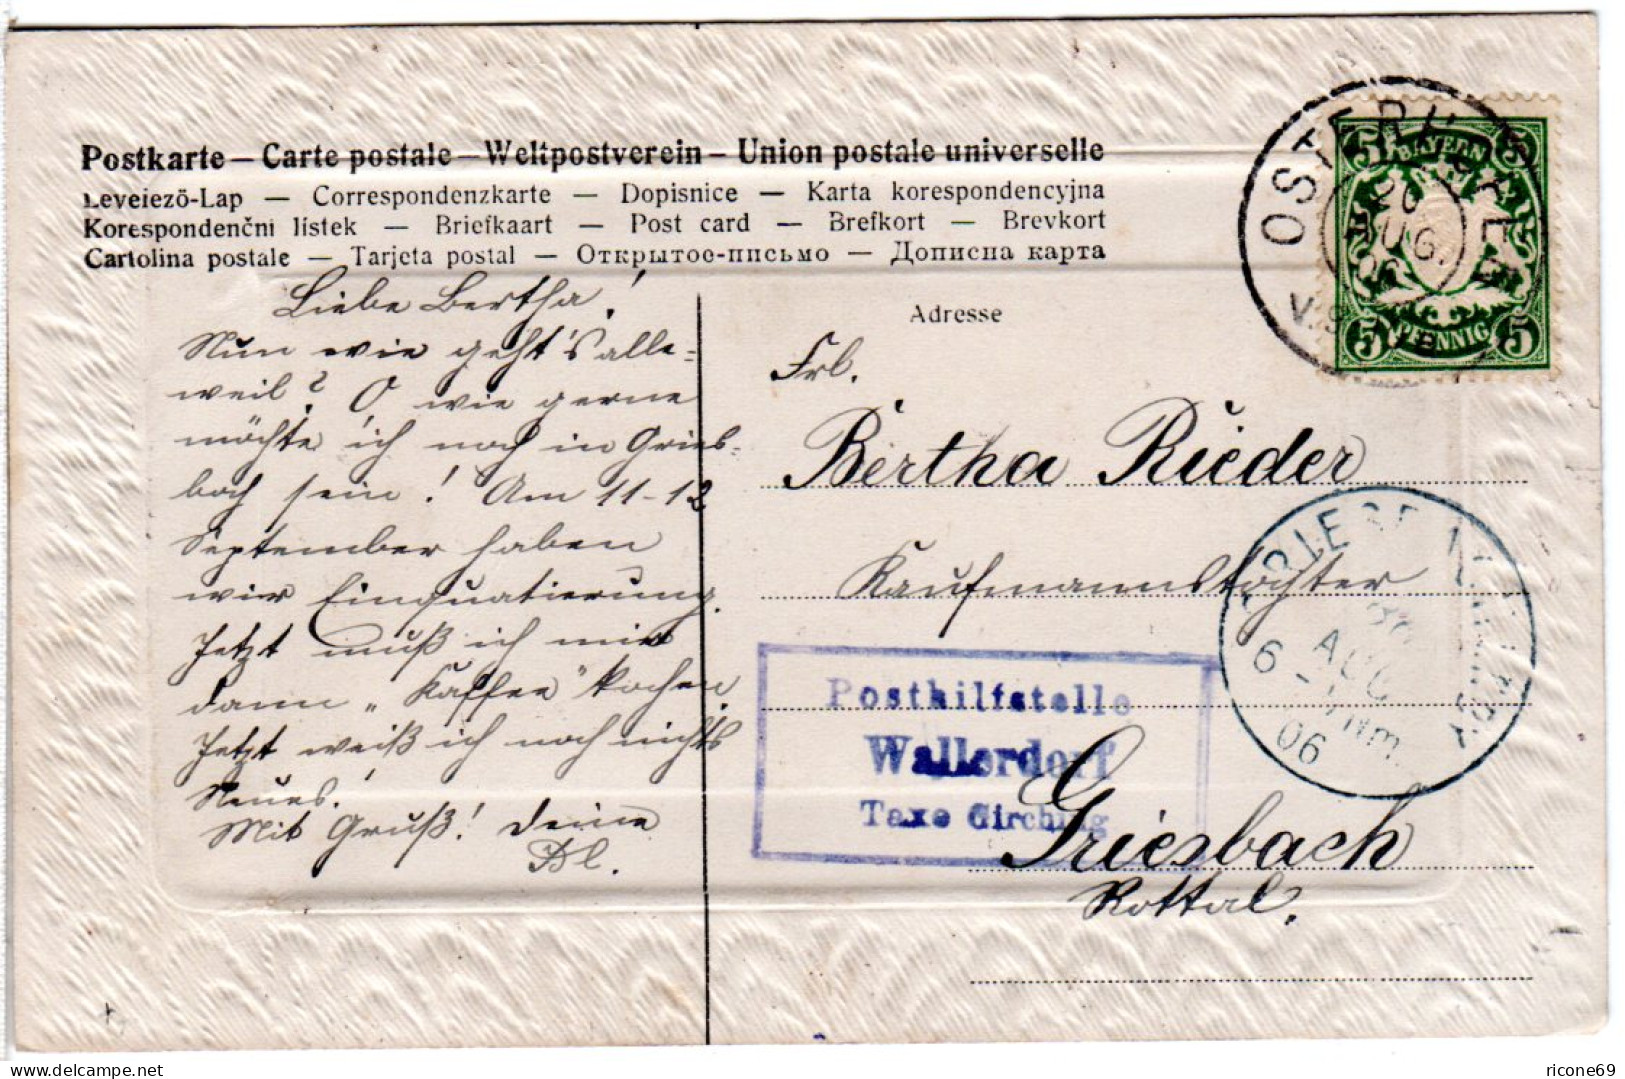 Postkarte – Carte postale – Weltpostverein – Union postale universelle
Levelező-Lap — Correspondenzkarte — Dopisnice — Karta korespondencyjna
Korespondenční lístek — Briefkaart — Post card — Brefkort — Brevkort
Cartolina postale — Tarjeta postal — Открытое-письмо — Дописна карта
Liebe Bertha!
Nun wie geht's alle=
weil? O wie gerne
möchte ich noch in Gries-
bach sein! Am 11-12
September haben
wir Einquatierung.
Jetzt muß ich mir
dann „Kaffee" kochen.
Jetzt weiß ich noch nichts
Neues.
Mit Gruß! Deine
Adresse
Frl.
Bertha Rieder
Kaufmannstochter
Griesbach
Rottal.
Posthilfstelle
Wallerdorf
Taxe Girching
BAYERN
5 5
5 PFENNIG 5
AUG.
06
AUG
6 - Nm.
06
ricone69